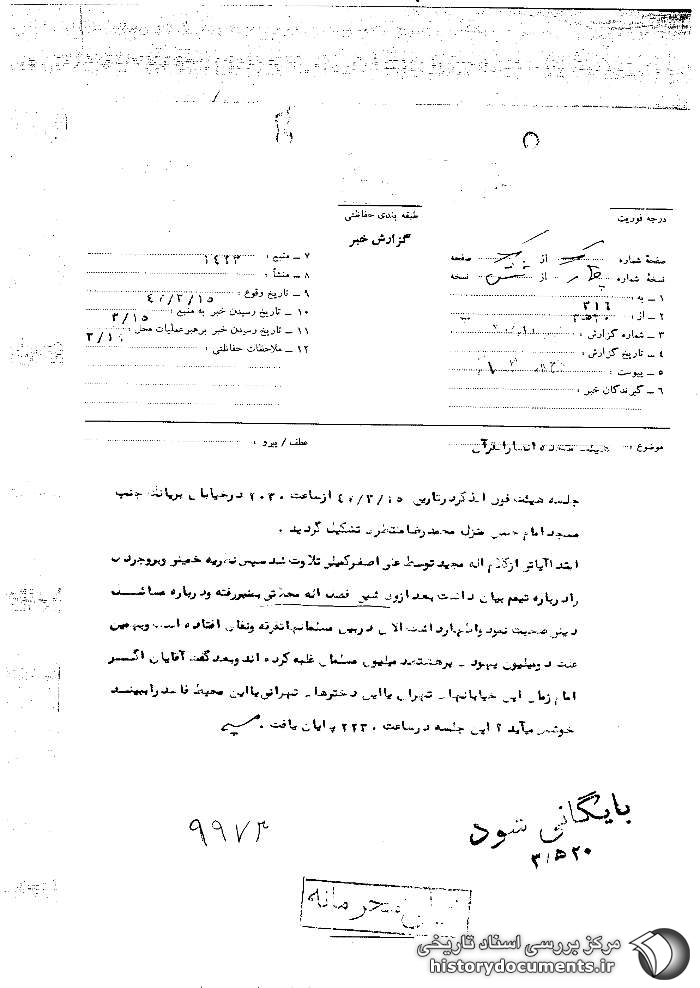 درجه فوریت
طبقه بندی حفاظتی
گزارش خبر
صفحهٔ شماره یک از یک صفحه
نسخهٔ شماره چهار از شش نسخه
۱ ـ به : ۳۱۶
۲ ـ از :
۳ ـ شماره گزارش :
۴ ـ تاریخ گزارش :
۵ ـ پیوست :
۶ ـ گیرندگان خبر :
۷ ـ منبع : ۱۴۲۳
۸ ـ منشأ :
۹ ـ تاریخ وقوع :
۱۰ ـ تاریخ رسیدن خبر به منبع : ۳/۱۵
۱۱ ـ تاریخ رسیدن خبر برهبر عملیات محل :
۱۲ ـ ملاحظات حفاظتی :
موضوع : انصار القرآن
عطف / پیرو :
جلسه هیئت فوق الذکر در تاریخ از ساعت ۲۰۳۰ در خیابان بریانک جنب
مسجد امام حسن منزل محمدرضا منتظری تشکیل گردید .
ابتدا آیاتی از کلام اله مجید توسط علی اصغر تلاوت شد سپس نظریه خمینی و بروجردی
را درباره تیمم بیان داشت بعد از وی شیخ فضل اله محلاتی بمنبر رفته و درباره مسائل
دینی صحبت نمود و اظهار داشت الان در بین مسلمانها تفرقه و نفاق افتاده است و بهمین
علت دو میلیون یهودی برهشتصد میلیون مسلمان غلبه کرده اند و بعد گفت آقایان اگر
امام زمان این خیابانهای تهران یا این دخترهای تهرانی یا این محیط فاسد را ببیند
خوشش میآید ؟ این جلسه در ساعت ۲۲۳۰ پایان یافت .
بایگانی شود
۳/۵۲۰
۹۹۷۲
خیلی محرمانه
مرکز بررسی اسناد تاریخی
historydocuments.ir